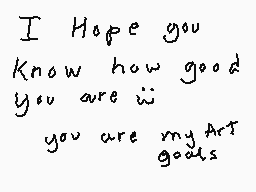 I Hope you
Know how good
you are ü
you are my Art
goals